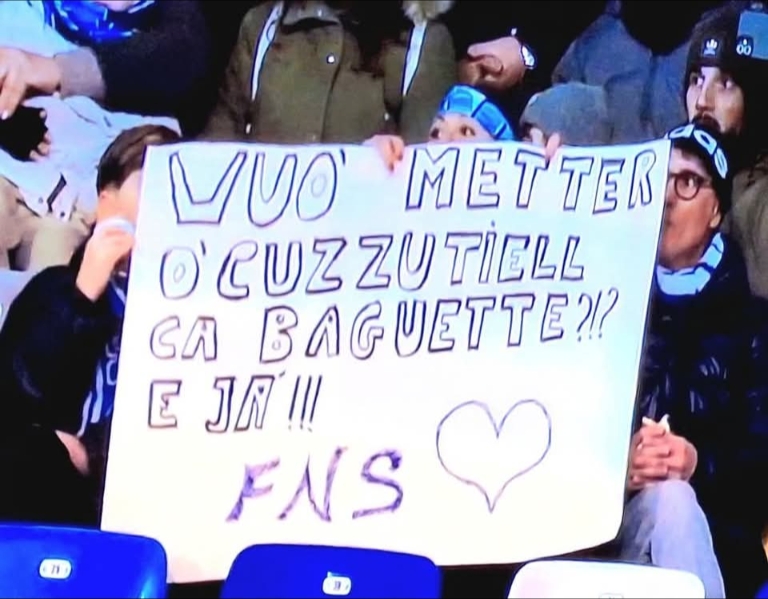 VUO' METTER
O'CUZZUTIELL
CA BAGUETTE?!?
E JA'!!!
FNS